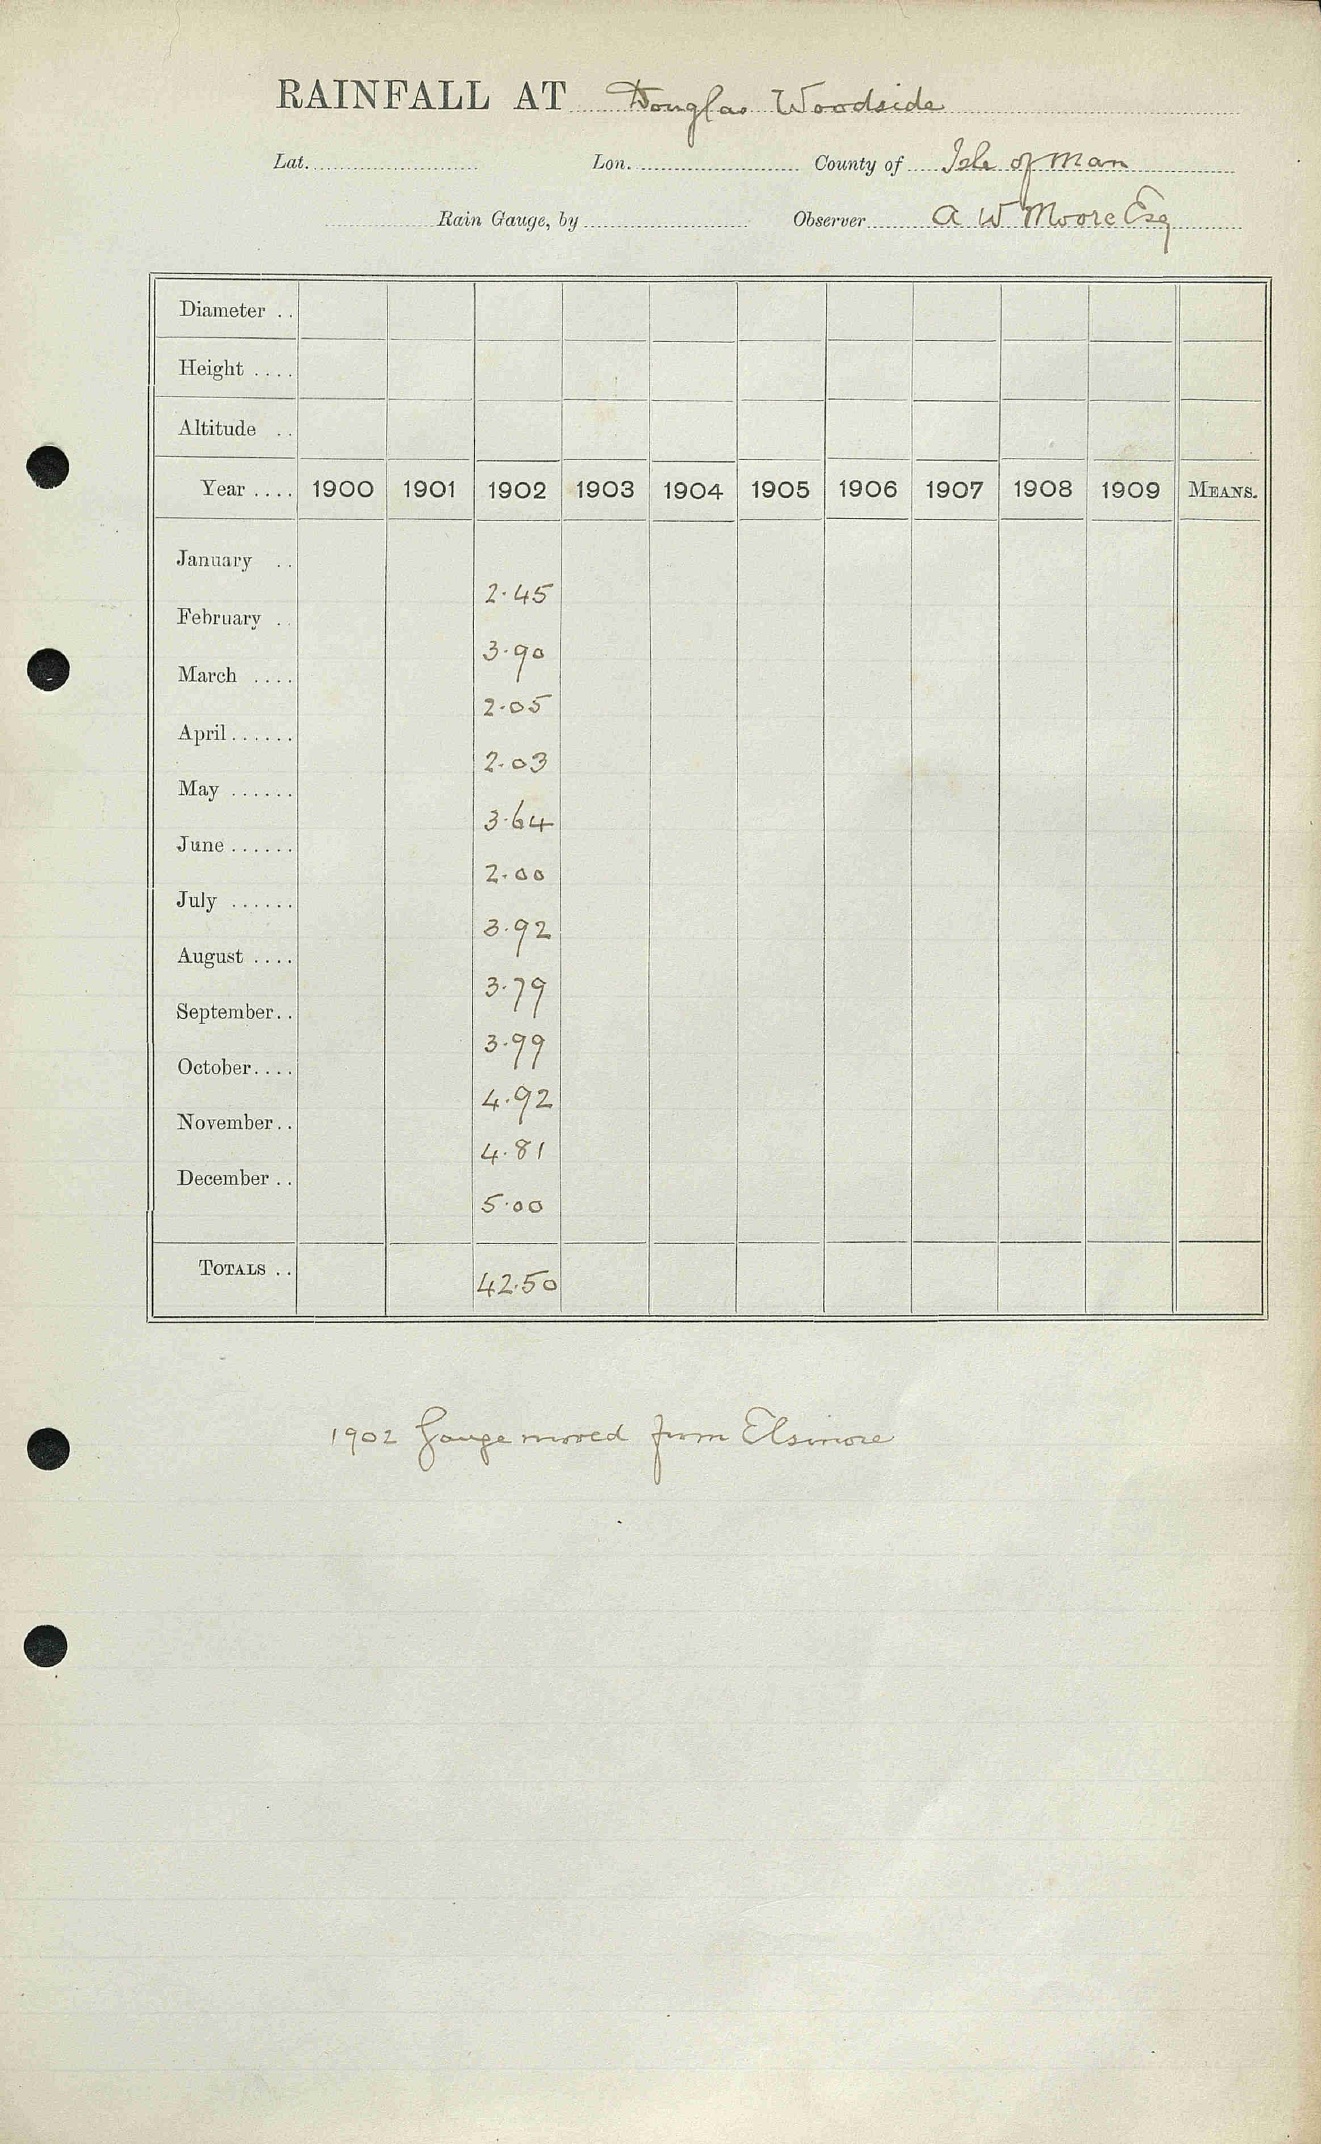 RAINFALL AT Douglas Woodside
Lat. Lon. County of Isle of Man
Rain Gauge, by Observer A W Moore Esq
Diameter ..
Height ....
Altitude ..
Year .... 1900 1901 1902 1903 1904 1905 1906 1907 1908 1909 MEANS.
January ..
2.45
February ..
3.90
March ....
2.05
April ......
2.03
May ......
3.64
June ......
2.00
July ......
3.92
August ....
3.79
September..
3.99
October....
4.92
November..
4.81
December ..
5.00
TOTALS .. 42.50
1902 Gauge moved from Elsinore